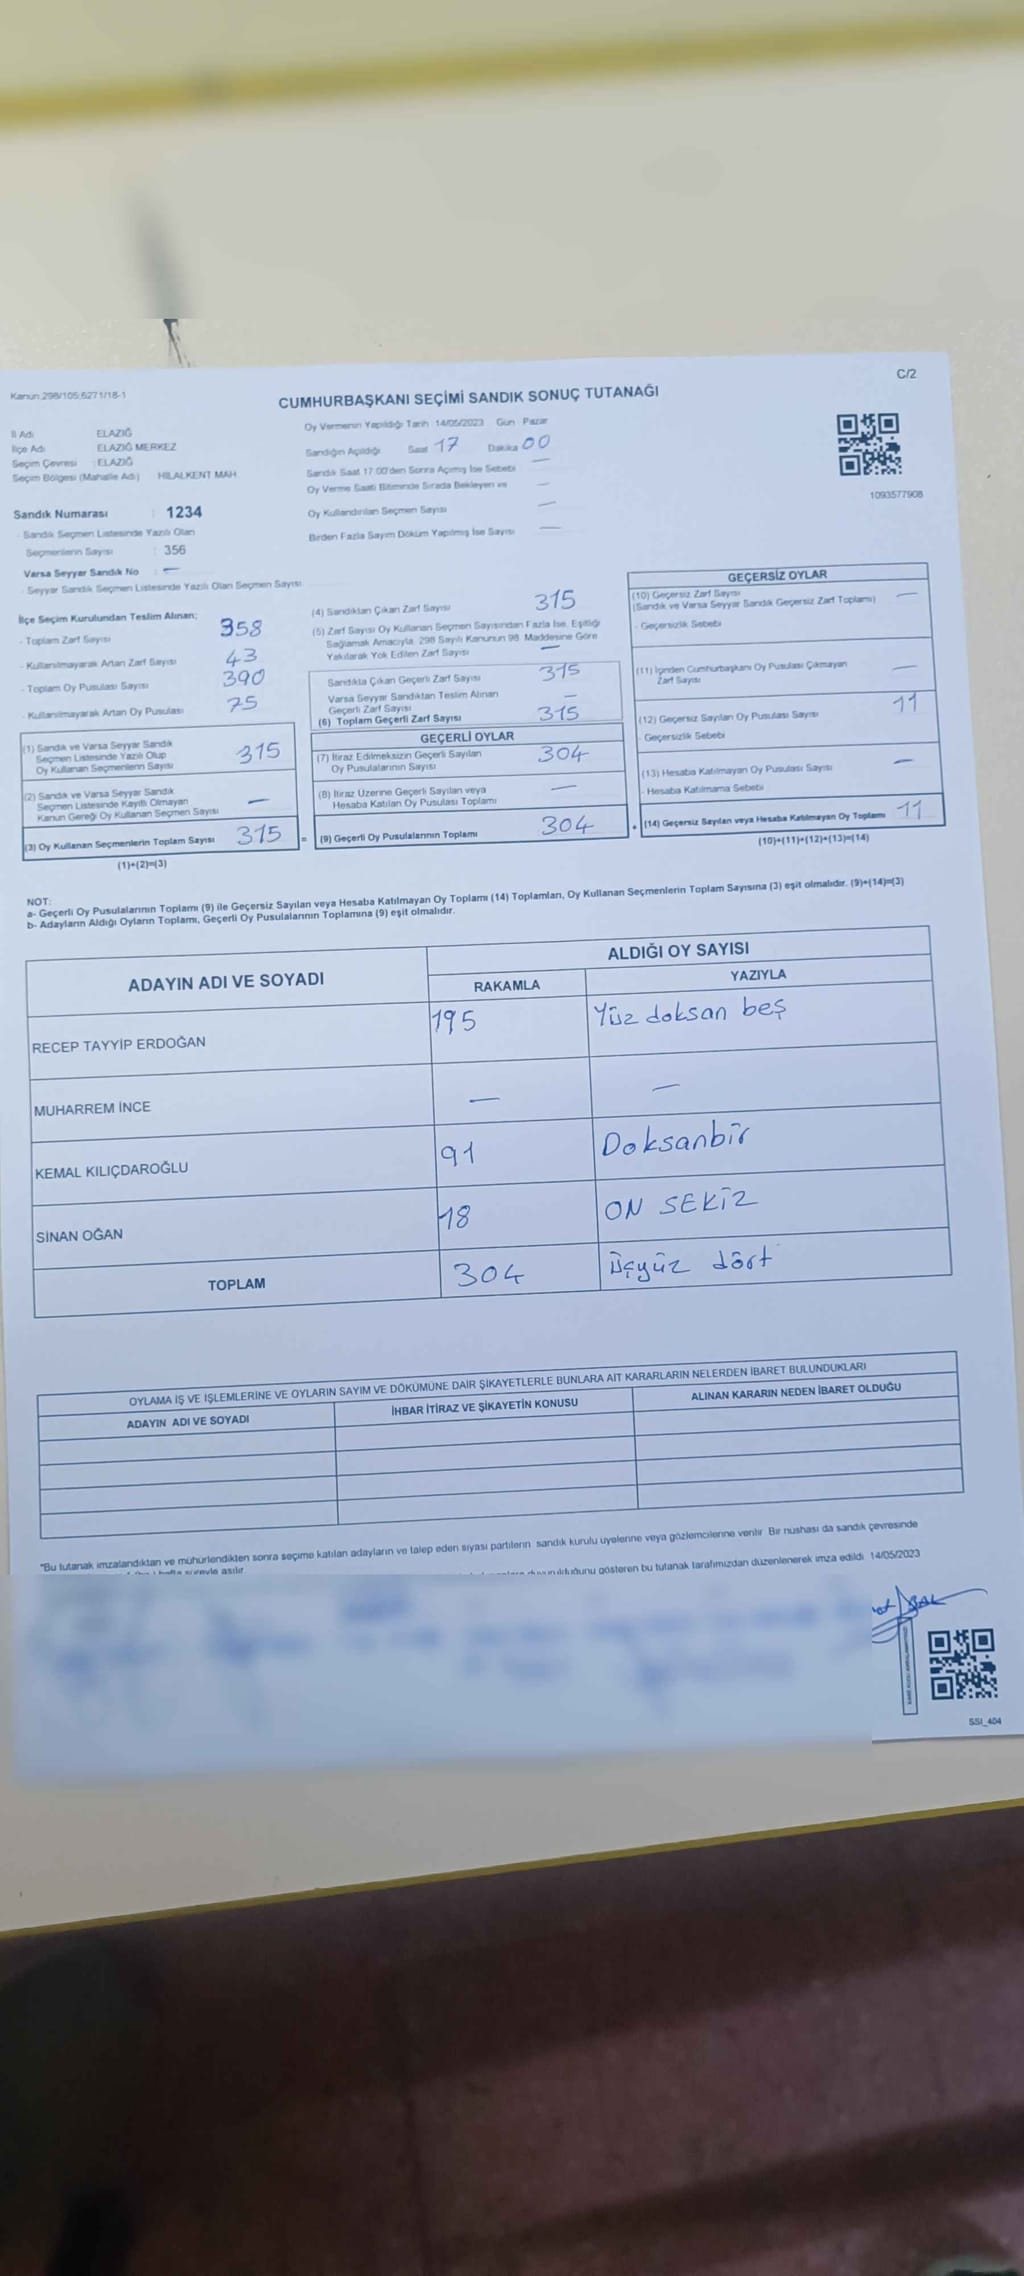 Kanun:298/105,6271/18-1
C/2
CUMHURBAŞKANI SEÇİMİ SANDIK SONUÇ TUTANAĞI
İl Adı : ELAZIĞ
İlçe Adı : ELAZIĞ MERKEZ
Seçim Çevresi : ELAZIĞ
Seçim Bölgesi (Mahalle Adı) HİLALKENT MAH.
Sandık Numarası : 1234
- Sandık Seçmen Listesinde Yazılı Olan
Seçmenlerin Sayısı : 356
Varsa Seyyar Sandık No : —
- Seyyar Sandık Seçmen Listesinde Yazılı Olan Seçmen Sayısı
Oy Vermenin Yapıldığı Tarih 14/05/2023 Gün Pazar
Sandığın Açıldığı Saat 17 Dakika 00
Sandık Saat 17:00'den Sonra Açılmış İse Sebebi —
Oy Verme Saati Bitiminde Sırada Bekleyen ve —
Oy Kullandırılan Seçmen Sayısı —
Birden Fazla Sayım Döküm Yapılmış İse Sayısı —
1093577908
İlçe Seçim Kurulundan Teslim Alınan;
- Toplam Zarf Sayısı 358
- Kullanılmayarak Artan Zarf Sayısı 43
- Toplam Oy Pusulası Sayısı 390
- Kullanılmayarak Artan Oy Pusulası 75
(1) Sandık ve Varsa Seyyar Sandık
Seçmen Listesinde Yazılı Olup
Oy Kullanan Seçmenlerin Sayısı 315
(2) Sandık ve Varsa Seyyar Sandık
Seçmen Listesinde Kayıtlı Olmayan
Kanun Gereği Oy Kullanan Seçmen Sayısı —
(3) Oy Kullanan Seçmenlerin Toplam Sayısı 315
(1)+(2)=(3)
(4) Sandıktan Çıkan Zarf Sayısı 315
(5) Zarf Sayısı Oy Kullanan Seçmen Sayısından Fazla İse, Eşitliği
Sağlamak Amacıyla, 298 Sayılı Kanunun 98. Maddesine Göre
Yakılarak Yok Edilen Zarf Sayısı —
Sandıkta Çıkan Geçerli Zarf Sayısı 315
Varsa Seyyar Sandıktan Teslim Alınan
Geçerli Zarf Sayısı —
(6) Toplam Geçerli Zarf Sayısı 315
GEÇERLİ OYLAR
(7) İtiraz Edilmeksizin Geçerli Sayılan
Oy Pusulalarının Sayısı 304
(8) İtiraz Üzerine Geçerli Sayılan veya
Hesaba Katılan Oy Pusulası Toplamı —
= (9) Geçerli Oy Pusulalarının Toplamı 304
GEÇERSİZ OYLAR
(10) Geçersiz Zarf Sayısı —
(Sandık ve Varsa Seyyar Sandık Geçersiz Zarf Toplamı)
- Geçersizlik Sebebi
(11) İçinden Cumhurbaşkanı Oy Pusulası Çıkmayan
Zarf Sayısı —
(12) Geçersiz Sayılan Oy Pusulası Sayısı 11
- Geçersizlik Sebebi
(13) Hesaba Katılmayan Oy Pusulası Sayısı —
- Hesaba Katılmama Sebebi
+ (14) Geçersiz Sayılan veya Hesaba Katılmayan Oy Toplamı 11
(10)+(11)+(12)+(13)=(14)
NOT:
a- Geçerli Oy Pusulalarının Toplamı (9) ile Geçersiz Sayılan veya Hesaba Katılmayan Oy Toplamı (14) Toplamları, Oy Kullanan Seçmenlerin Toplam Sayısına (3) eşit olmalıdır. (9)+(14)=(3)
b- Adayların Aldığı Oyların Toplamı, Geçerli Oy Pusulalarının Toplamına (9) eşit olmalıdır.
ADAYIN ADI VE SOYADI ALDIĞI OY SAYISI
RAKAMLA YAZIYLA
RECEP TAYYİP ERDOĞAN 195 Yüz doksan beş
MUHARREM İNCE — —
KEMAL KILIÇDAROĞLU 91 Doksanbir
SİNAN OĞAN 18 ON SEKİZ
TOPLAM 304 üçyüz dört
OYLAMA İŞ VE İŞLEMLERİNE VE OYLARIN SAYIM VE DÖKÜMÜNE DAİR ŞİKAYETLERLE BUNLARA AİT KARARLARIN NELERDEN İBARET BULUNDUKLARI
ADAYIN ADI VE SOYADI İHBAR İTİRAZ VE ŞİKAYETİN KONUSU ALINAN KARARIN NEDEN İBARET OLDUĞU
*Bu tutanak imzalandıktan ve mühürlendikten sonra seçime katılan adayların ve talep eden siyasi partilerin sandık kurulu üyelerine veya gözlemcilerine verilir. Bir nüshası da sandık çevresinde
hafta süreyle asılır.
duyurulduğunu gösteren bu tutanak tarafımızdan düzenlenerek imza edildi. 14/05/2023
SSI_404